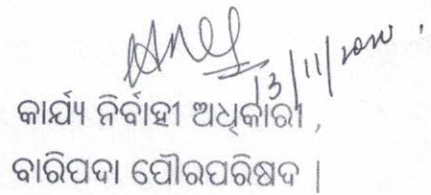 13/11/2020
କାର୍ଯ୍ୟ ନିର୍ବାହୀ ଅଧିକାରୀ ,
ବାରିପଦା ପୌରପରିଷଦ |